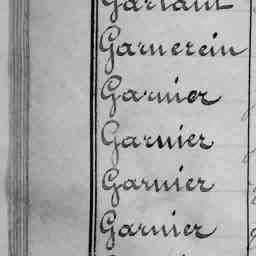 Garnerein
Garnier
Garnier
Garnier
Garnier